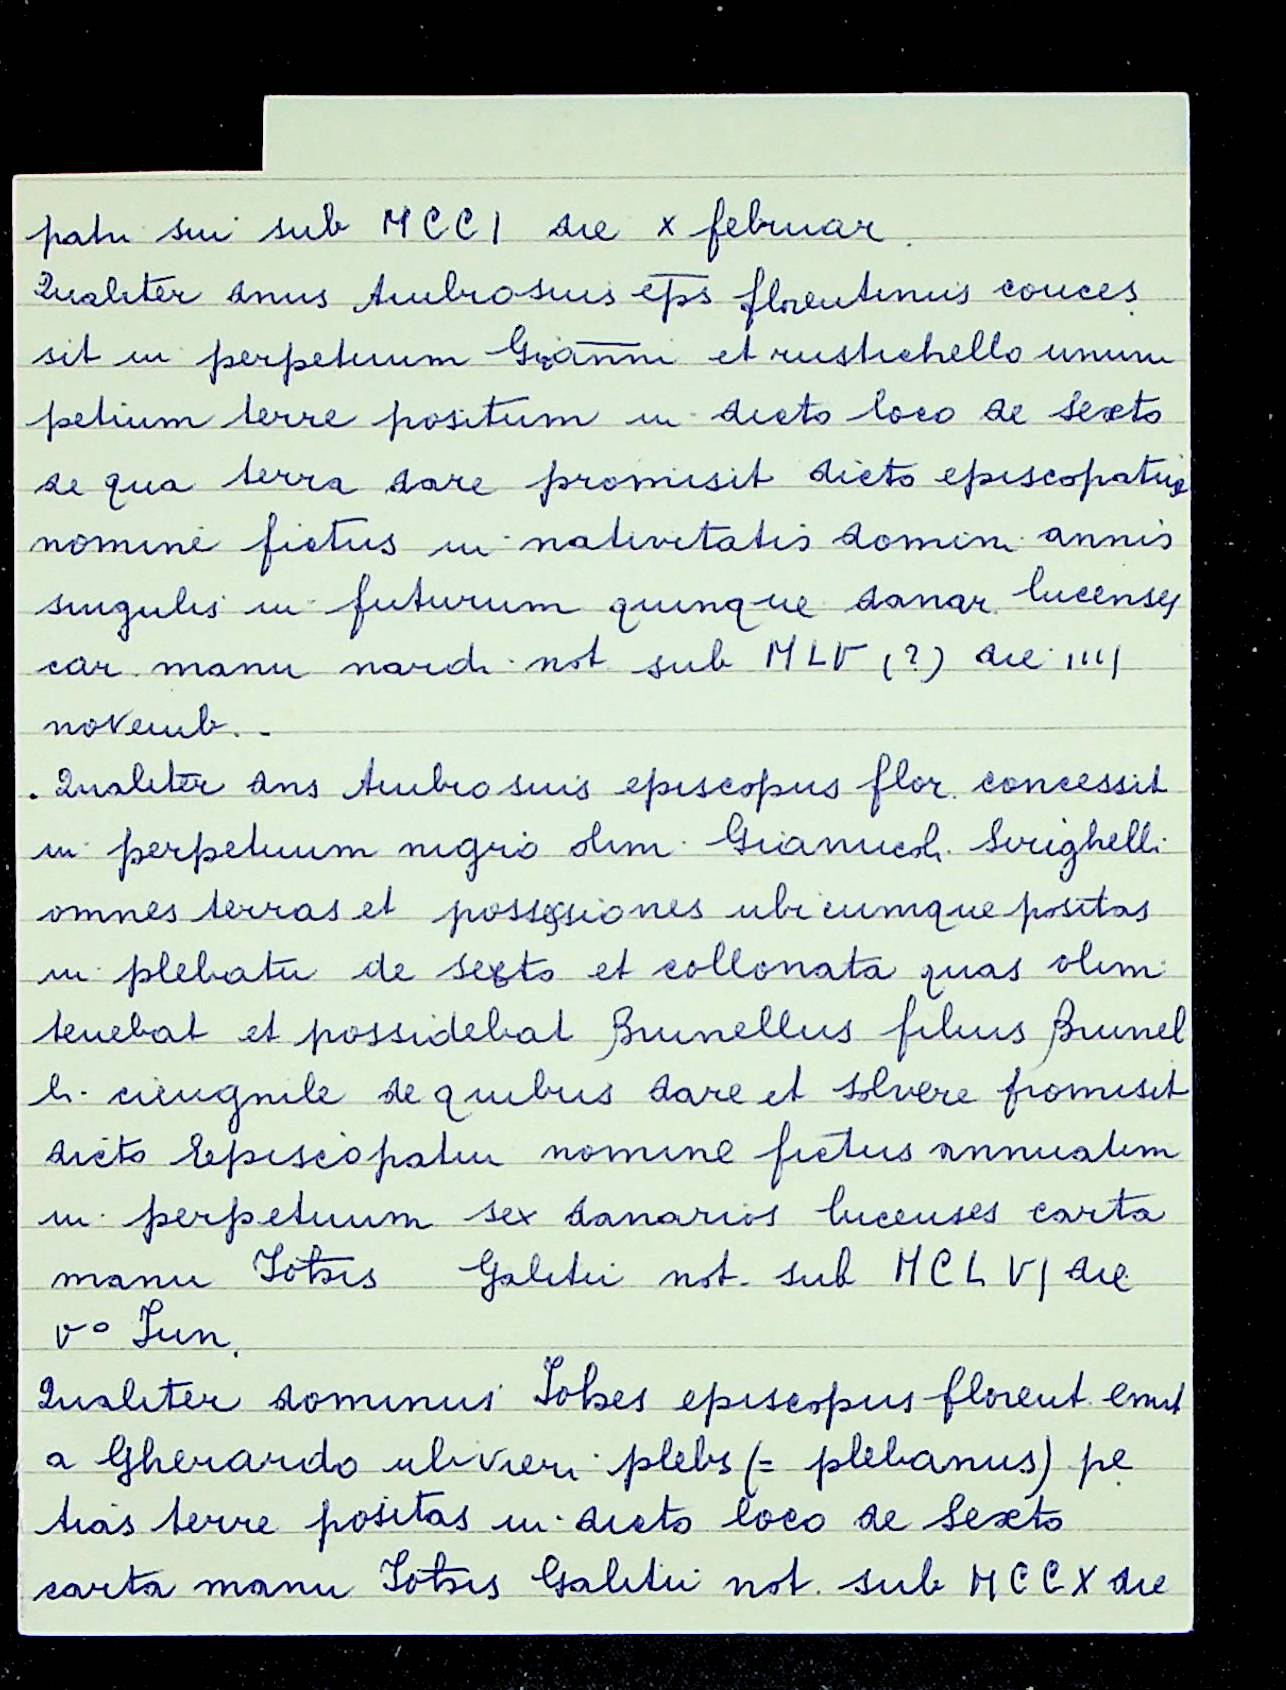 patu sui sub MCCI die x februar.
Qualiter dnus Ambrosius ep̅s florentinus conces
sit in perpetuum Gia̅n̅ni et rustichello unum
petium terre positum in dicto loco de Sexto
de qua terra dare promisit dicto episcopatui
nomine fictus in nativitatis domini annis
singulis in futurum quinque danar. lucenses
car. manu nardi not sub MLV (?) die IIII
novemb..
. Qualiter dns Ambrosius episcopus flor. concessit
in perpetuum nigrio olim Gianucoli Sirighelli
omnes terras et possessiones ubicumque positas
in plebatu de sexto et collonata quas olim
tenebat et possidebat Brunellus filius Brunel
li. de quibus dare et solvere promisit
dicto Episcopatui nomine fictus annuatim
in perpetuum sex danarios lucenses carta
manu Johis Galitii not. sub MCLVI die
v° Jun.
Qualiter dominus Johes episcopus florent. emit
a Gherardo ulivieri plebs (= plebanus) pe
tias terre positas in dicto loco de Sexto
carta manu Johis Galitii not. sub MCCX die